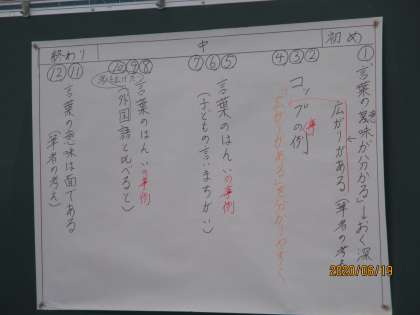 初め
中
終わり
①
「言葉の意味が分かる」→おく深
広がりがある（筆者の考
②③④
コップの例
広がりがある
⑤⑥⑦
言葉のはんいの事例
（子どもの言いまちがい）
⑧⑨⑩
言葉のはんいの事例
（外国語と比べると）
⑪⑫
言葉の意味は面である
（筆者の考え）
2020/06/19